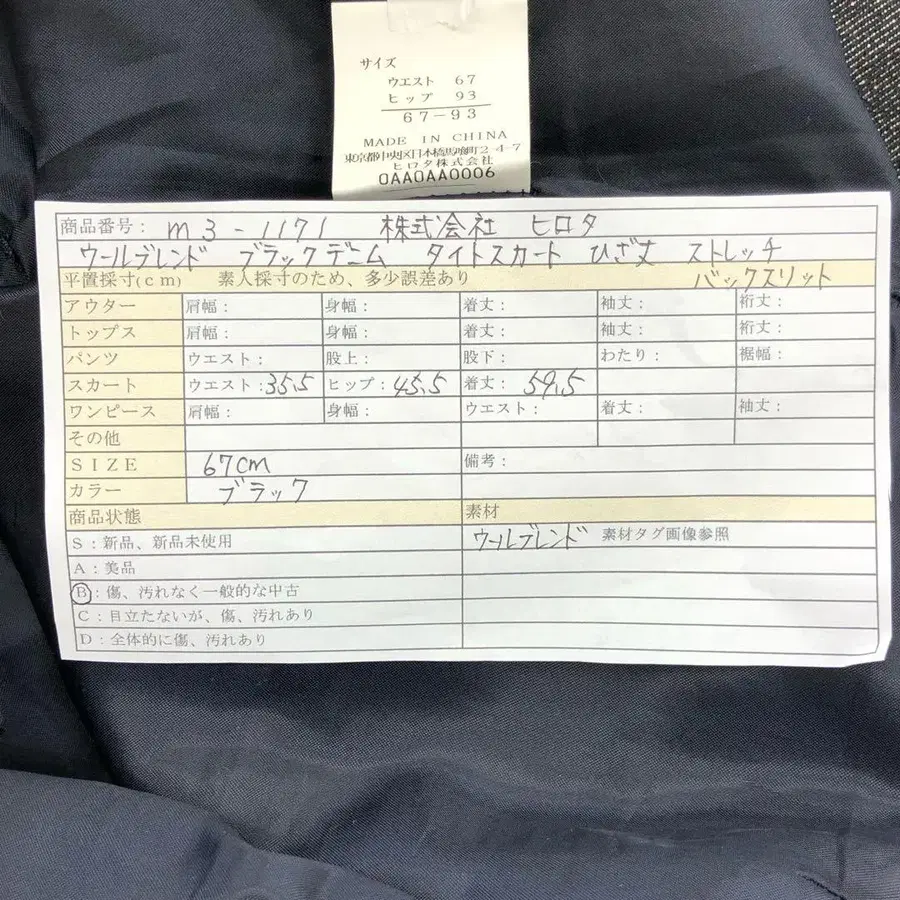 サイズ
ウエスト 67
ヒップ 93
67-93
MADE IN CHINA
東京都中央区日本橋馬喰町2-4-7
ヒロタ株式会社
OAAOAA0006
商品番号： m3-1171 株式会社 ヒロタ
ウールブレンド ブラックデニム タイトスカート ひざ丈 ストレッチ
バックスリット
平置採寸(cm) 素人採寸のため、多少誤差あり
アウター 肩幅： 身幅： 着丈： 袖丈： 裄丈：
トップス 肩幅： 身幅： 着丈： 袖丈： 裄丈：
パンツ ウエスト： 股上： 股下： わたり： 裾幅：
スカート ウエスト：35.5 ヒップ：45.5 着丈：59.5
ワンピース 肩幅： 身幅： ウエスト： 着丈： 袖丈：
その他
SIZE 67cm 備考：
カラー ブラック
商品状態 素材
S：新品、新品未使用 ウールブレンド 素材タグ画像参照
A：美品
B：傷、汚れなく一般的な中古
C：目立たないが、傷、汚れあり
D：全体的に傷、汚れあり